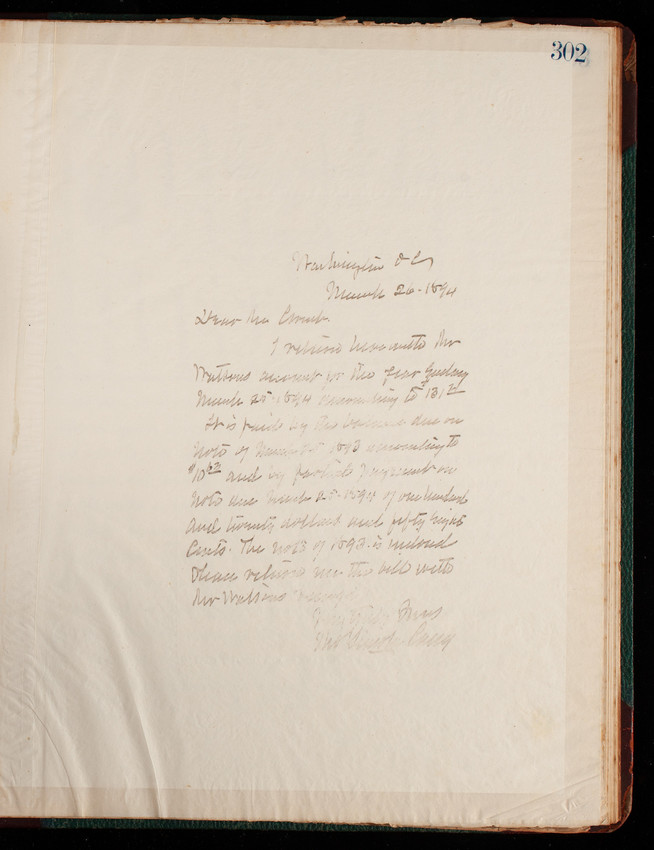 302
Washington D C
March 26 - 1894
Dear Mr Croub.
I return herewith Mr
Watsons account for the year Ending
March 25 - 1894 amounting to $131
It is paid by the balance due on
Note of March 25 1893 amounting to
$10 and by partial payment on
Note due March 25 - 1894 of one hundred
and twenty dollars and fifty eight
Cents. The note of 1893 is inclosed
Please return me the bill with
Mr Watsons receipt
Very truly Yours
Thos Lincoln Casey